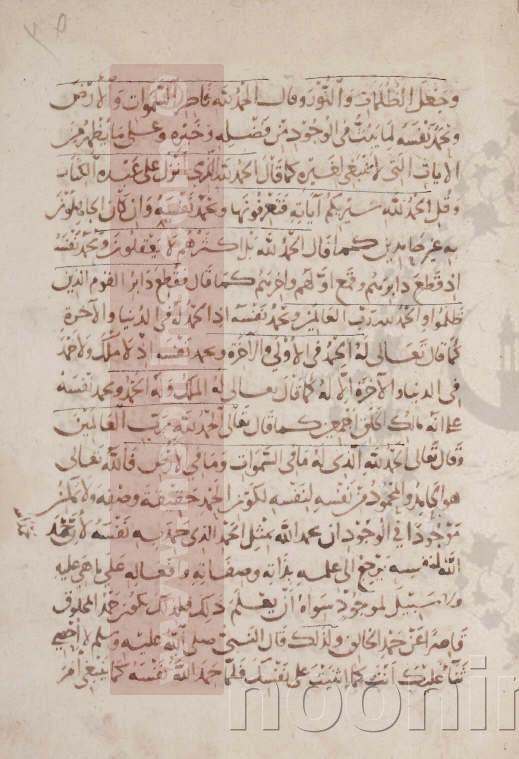 وجعل الظلمات والنور وقال الحمد لله فاطر السموات والأرض
ويحمد نفسه لما يبث في الوجود من فضله وخيره وعلى ما يظهر من
الآيات التي لا تنبغي لغيره كما قال الحمد لله الذي أنزل على عبده الكتاب
وقل الحمد لله سيريكم آياته فتعرفونها ويحمد نفسه وإن كان الجاهلون
به غير حامدين كما قال الحمد لله بل أكثرهم لا يعقلون ويحمد نفسه
إذ قطع دابرهم وقمع أولهم وآخرهم كما قال فقطع دابر القوم الذين
ظلموا والحمد لله رب العالمين ويحمد نفسه إذ الحمد له في الدنيا والآخرة
كما قال تعالى له الحمد في الأولى والآخرة ويحمد نفسه إذ لا ملك ولا حمد
في الدنيا والآخرة إلا له كما قال تعالى له الملك وله الحمد ويحمد نفسه
على أنه مالك الخلق أجمعين كما قال تعالى الحمد لله رب العالمين
وقال تعالى الحمد لله الذي له ما في السموات وما في الأرض فالله تعالى
هو الحامد والمحمود من نفسه لنفسه لكون الحمد حقيقة وصفه ولا يمكن
موجودا في الوجود أن يحمد الله بمثل الحمد الذي حمد به نفسه لأن حمد
الله لنفسه يرجع إلى علمه بذاته وصفاته وأفعاله على ما هي عليه
ولا سبيل لموجود سواه أن يعلم ذلك فلذلك يكون حمد المخلوق
قاصرا عن حمد الخالق ولذلك قال النبي صلى الله عليه وسلم لا أحصي
ثناء عليك أنت كما أثنيت على نفسك فلما حمد الله نفسه كما ينبغي أمر
noonin